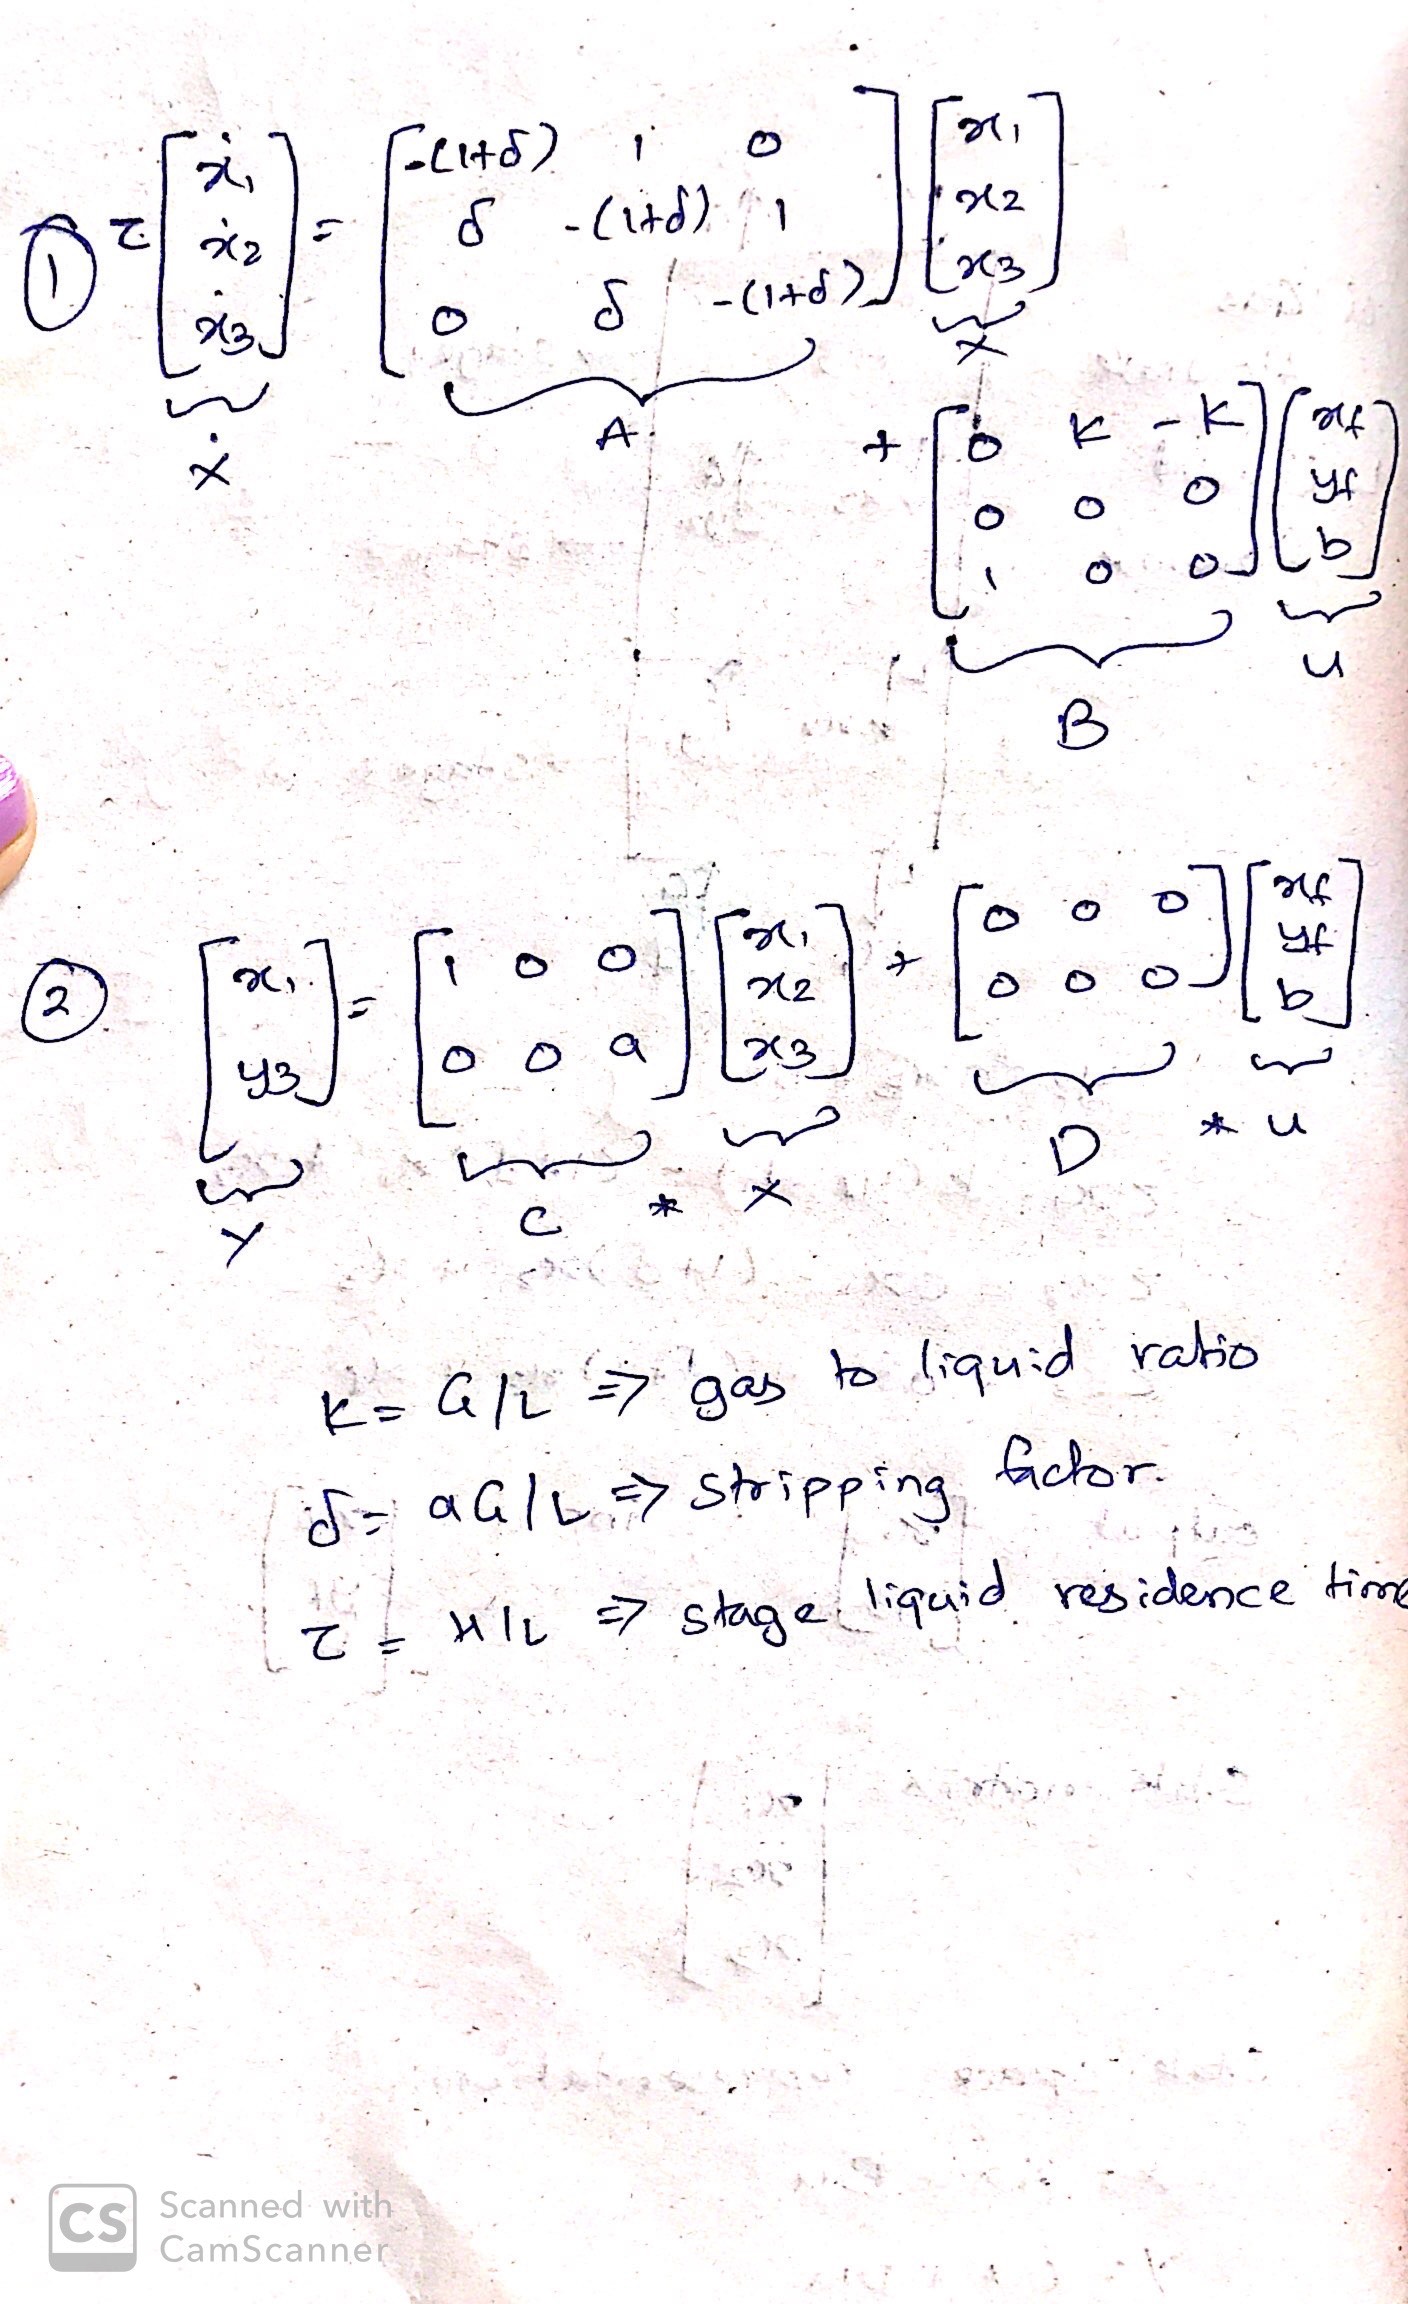 ① τ [ẋ1 ẋ2 ẋ3] = [-(1+δ) 1 0; δ -(1+δ) 1; 0 δ -(1+δ)] [x1 x2 x3]
Ẋ A X
+ [0 K -K; 0 0 0; 1 0 0] [xf yf b]
B u
② [x1 y3] = [1 0 0; 0 0 a] [x1 x2 x3] + [0 0 0; 0 0 0] [xf yf b]
Y C * X D * u
K = G/L => gas to liquid ratio
δ = aG/L => stripping factor.
τ = H/L => stage liquid residence time
CS Scanned with
CamScanner